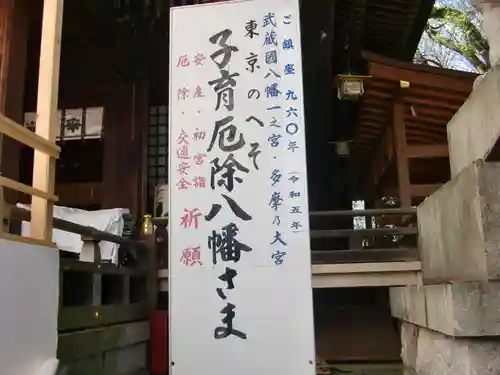 ご鎮座九六〇年(令和五年)
武蔵國八幡一之宮・多摩乃大宮
東京のへそ
子育厄除八幡さま
安産・初宮詣
厄除・交通安全
祈願